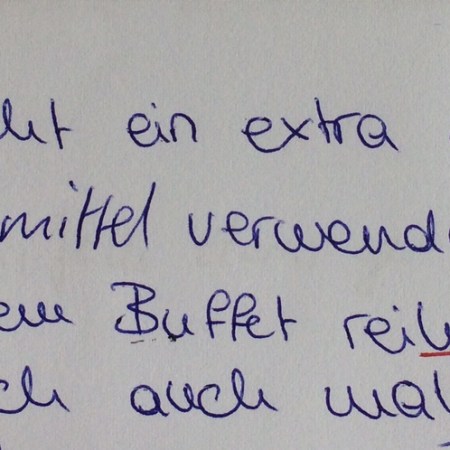 ein extra
mittel verwend
em Buffet rei
ch auch mal